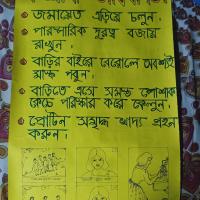 জমায়েত এড়িয়ে চলুন।
পারস্পারিক দুরত্ব বজায়
রাখুন।
বাড়ির বাইরে বেরোলে অবশ্যই
মাস্ক পরুন।
বাড়িতে এসে সমস্ত পোশাক
কেচে পরিষ্কার করে ফেলুন।
প্রোটিন সমৃদ্ধ খাদ্য গ্রহন
করুন।